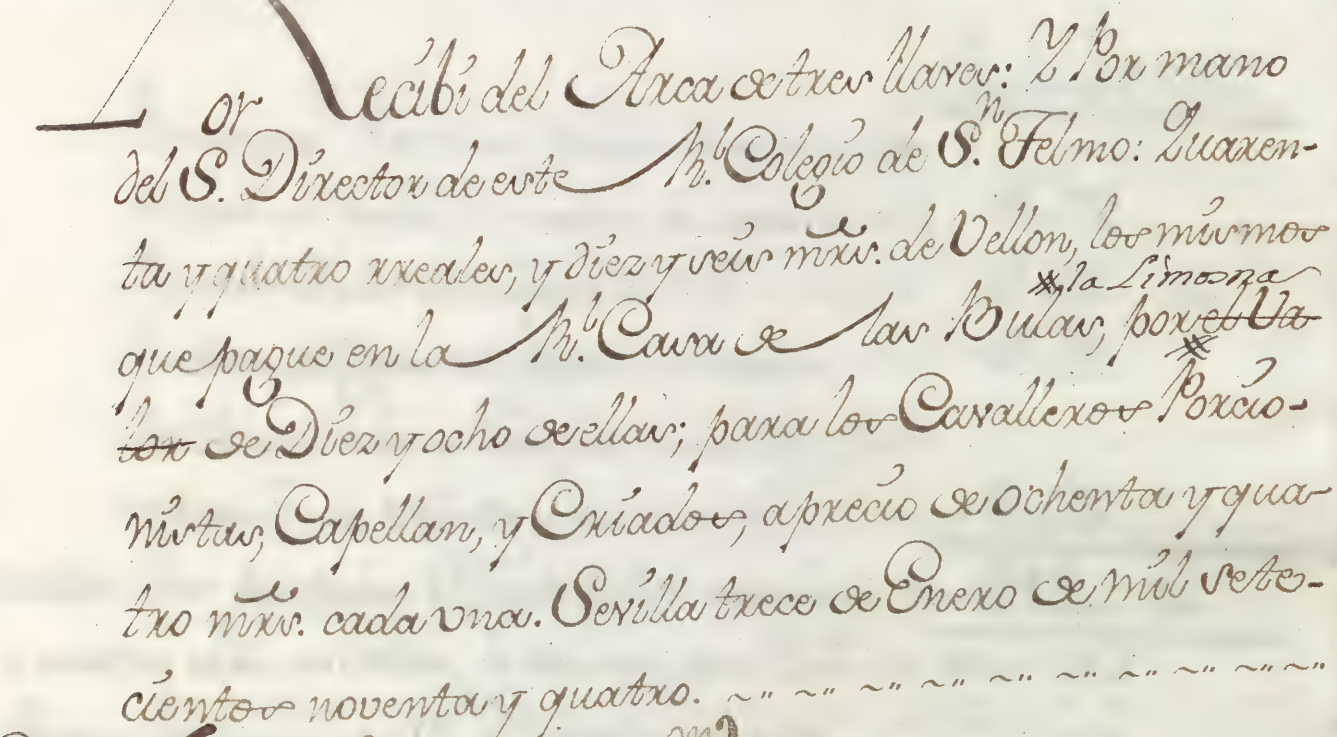 or Recibi del Arca de tres llaves: Y Por mano
del S. Director de este Rl. Colegio de Sn. Telmo: Quaren-
ta y quatro rreales, y diez y seis mrs. de Vellon, los mismos
# la Limosna
que pague en la Rl. Casa de las Bulas, por el Va
#
lor de Diez y ocho de ellas; para los Cavalleros Porcio-
nistas, Capellan, y Criados, a precio de ochenta y qua-
tro mrs. cada vna. Sevilla trece de Enero de mil sete-
cientos noventa y quatro.